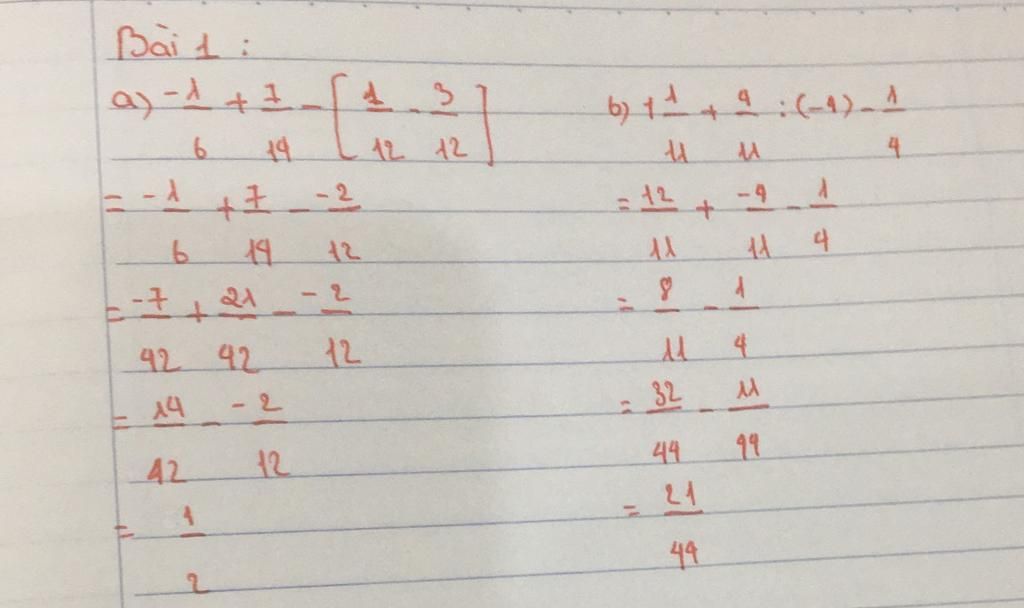 Bài 1 :
a) -1/6 + 7/14 - [1/12 - 3/12]
= -1/6 + 7/14 - -2/12
= -7/42 + 21/42 - -2/12
= 14/42 - -2/12
= 1/2
b) 1 1/11 + 4/11 : (-1) - 1/4
= 12/11 + -4/11 - 1/4
= 8/11 - 1/4
= 32/44 - 11/44
= 21/44